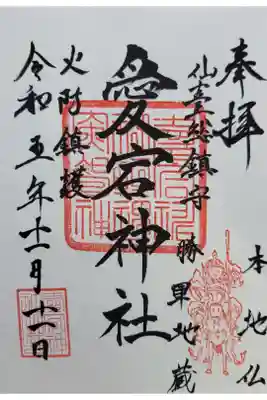 奉拝
仙臺総鎮守
勝軍地蔵
本地仏
愛宕神社
火防鎮護
令和五年十一月十一日